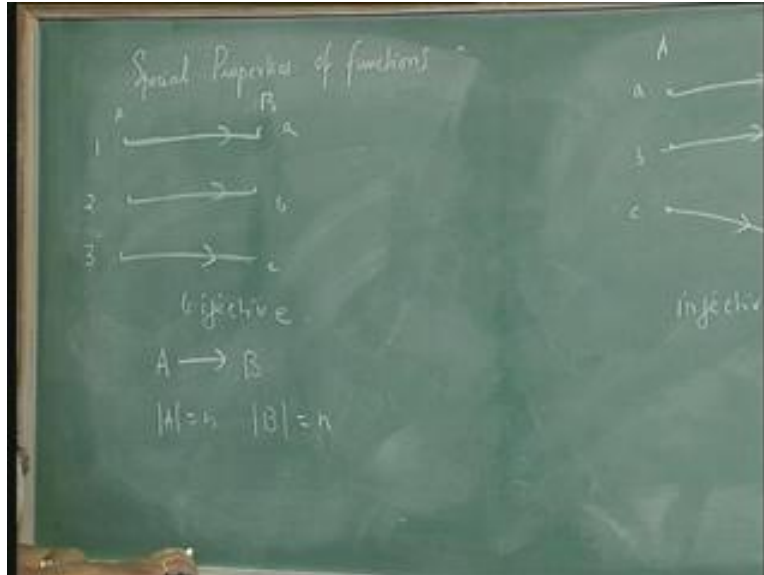 Special Properties of functions
A B
1 a
2 b
3 c
bijective
A → B
|A|=n |B|=n
A
a
b
c
injectiv